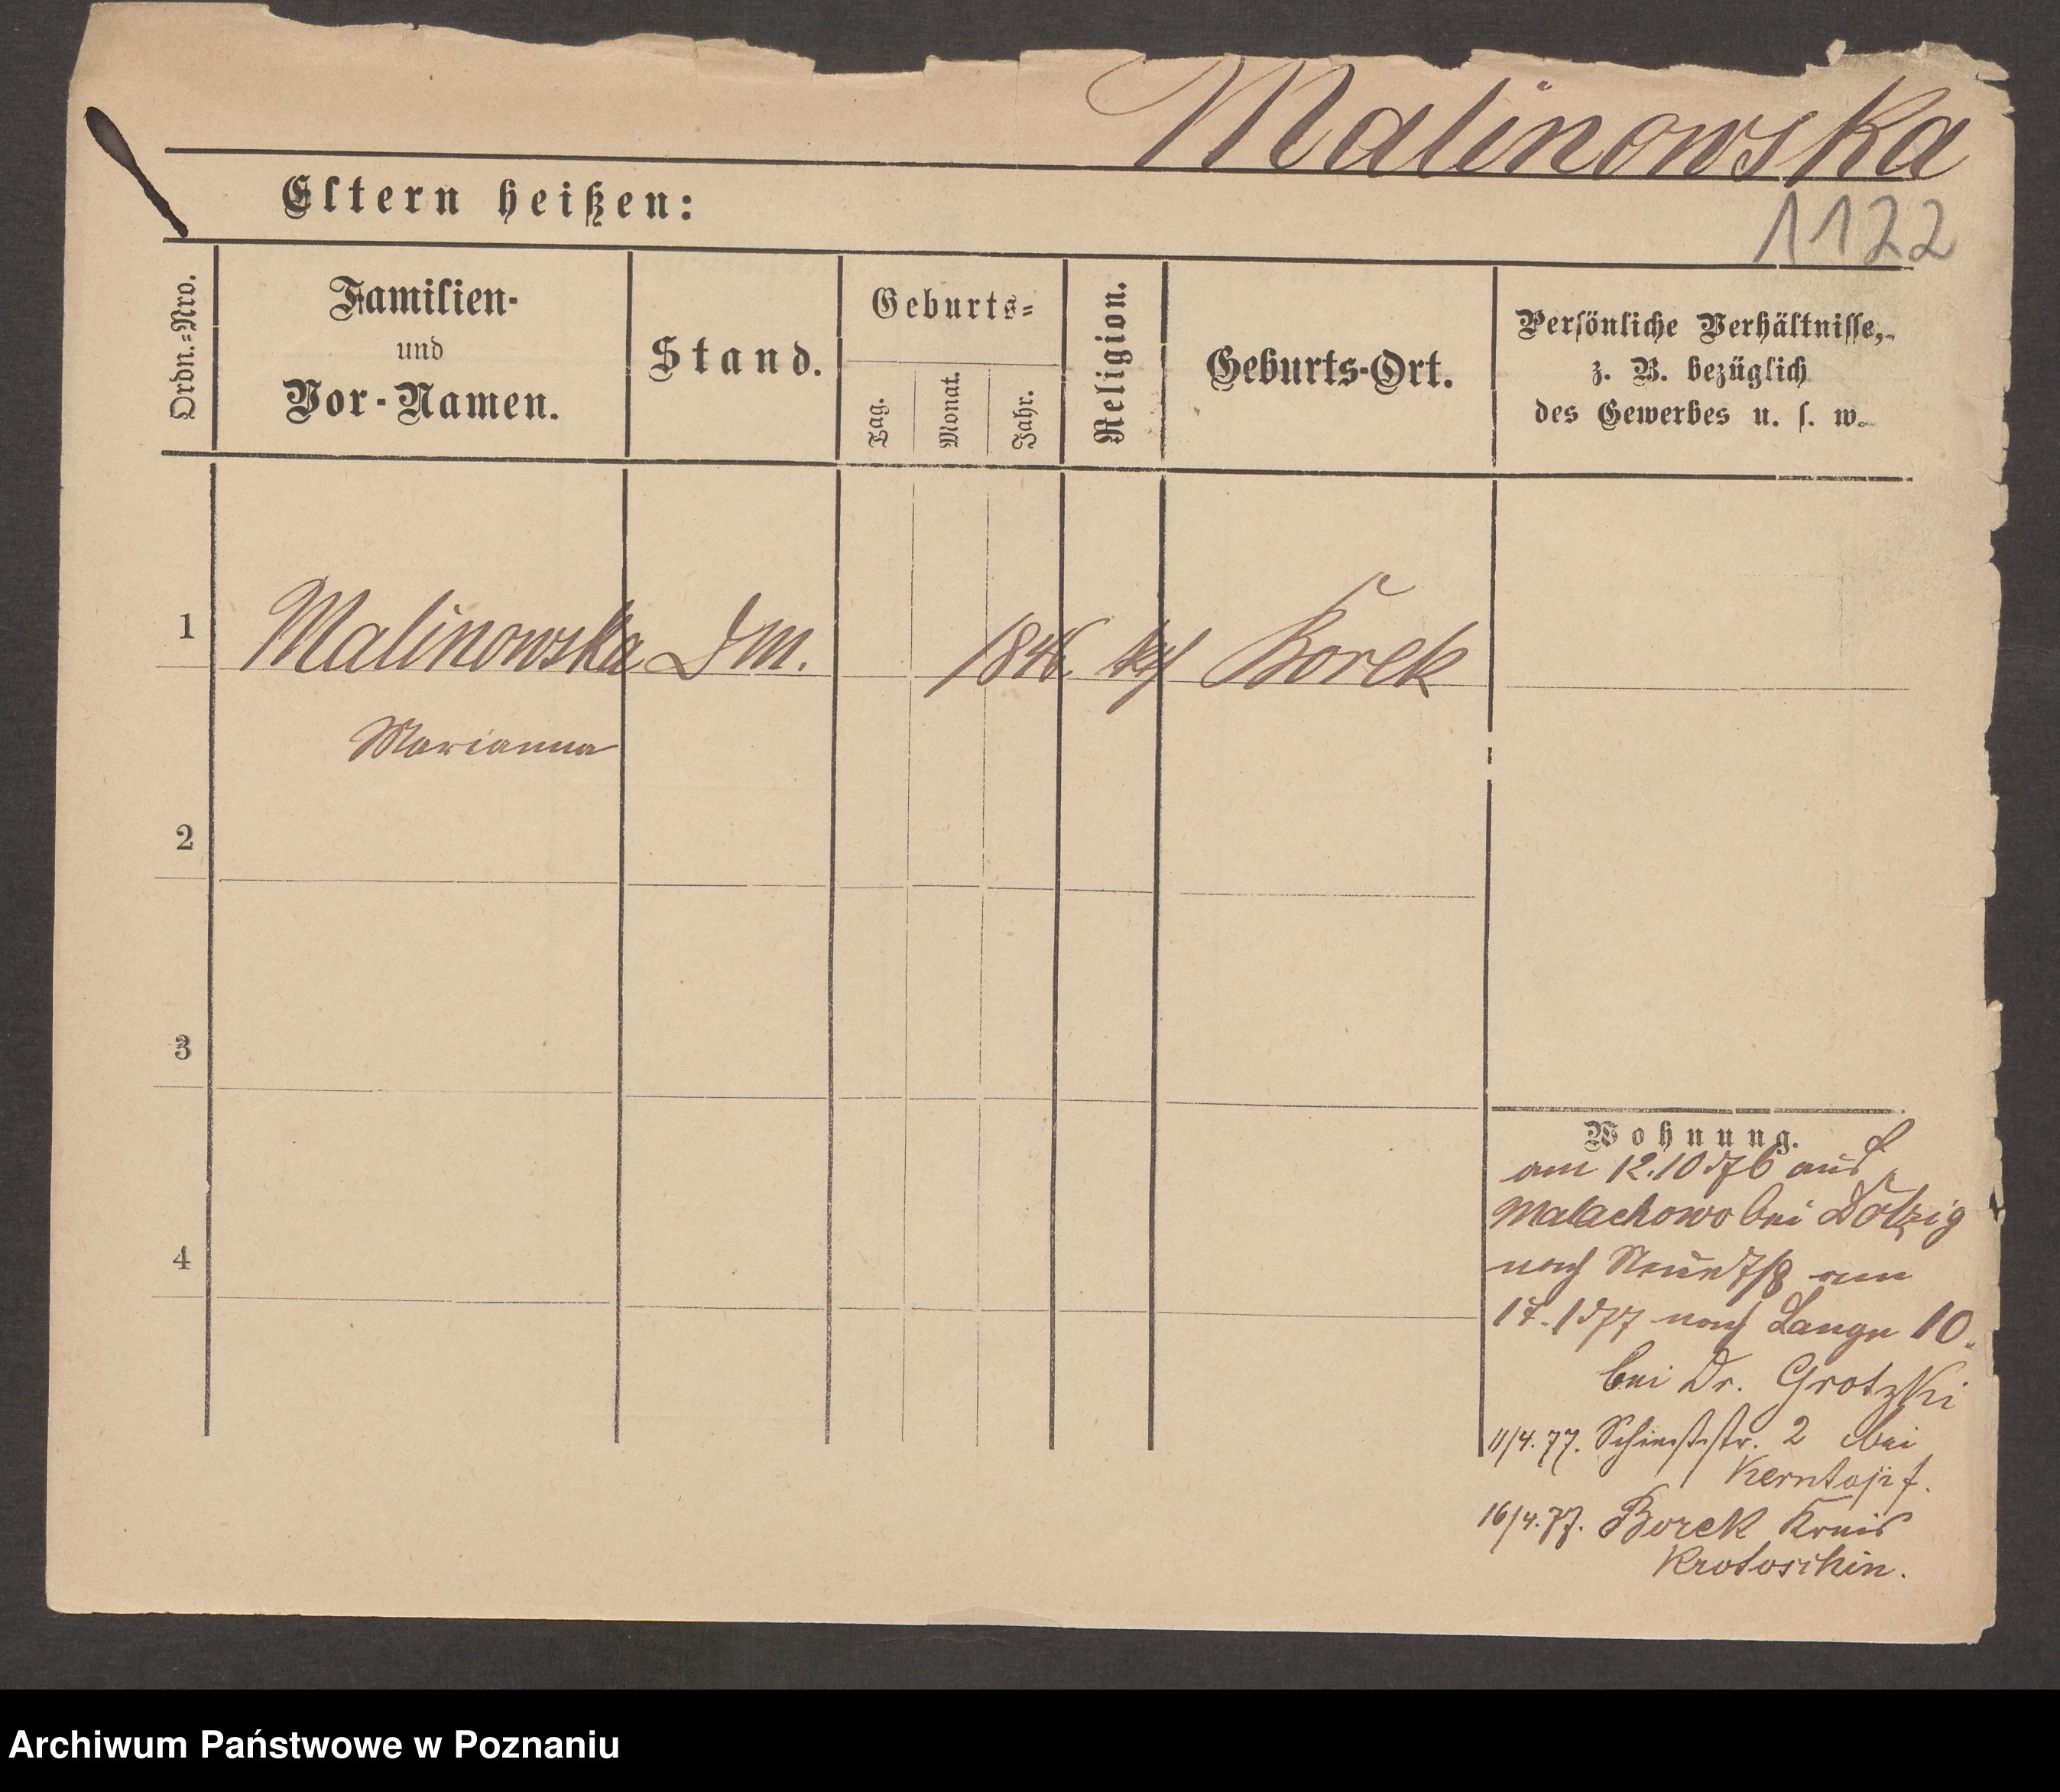 Malinowska
Eltern heißen:
1122
Ordn.-Nro.
Familien-
und
Vor-Namen.
Stand.
Geburts-
Tag.
Monat.
Jahr.
Religion.
Geburts-Ort.
Persönliche Verhältnisse,
z. B. bezüglich
des Gewerbes u. s. w.
1 Malinowska DM. 1846. kth Borek
Marianna
2
3
4
Wohnung.
am 12.10 76 aus
Malachowo bei Dolzig
nach 7/8 am
17.1 77 nach Lange 10.
bei Dr. Grotzki
11/4. 77. Schiesstr. 2 bei
Kerntopf.
16/4. 77. Borek Kreis
Krotoschin.
Archiwum Państwowe w Poznaniu